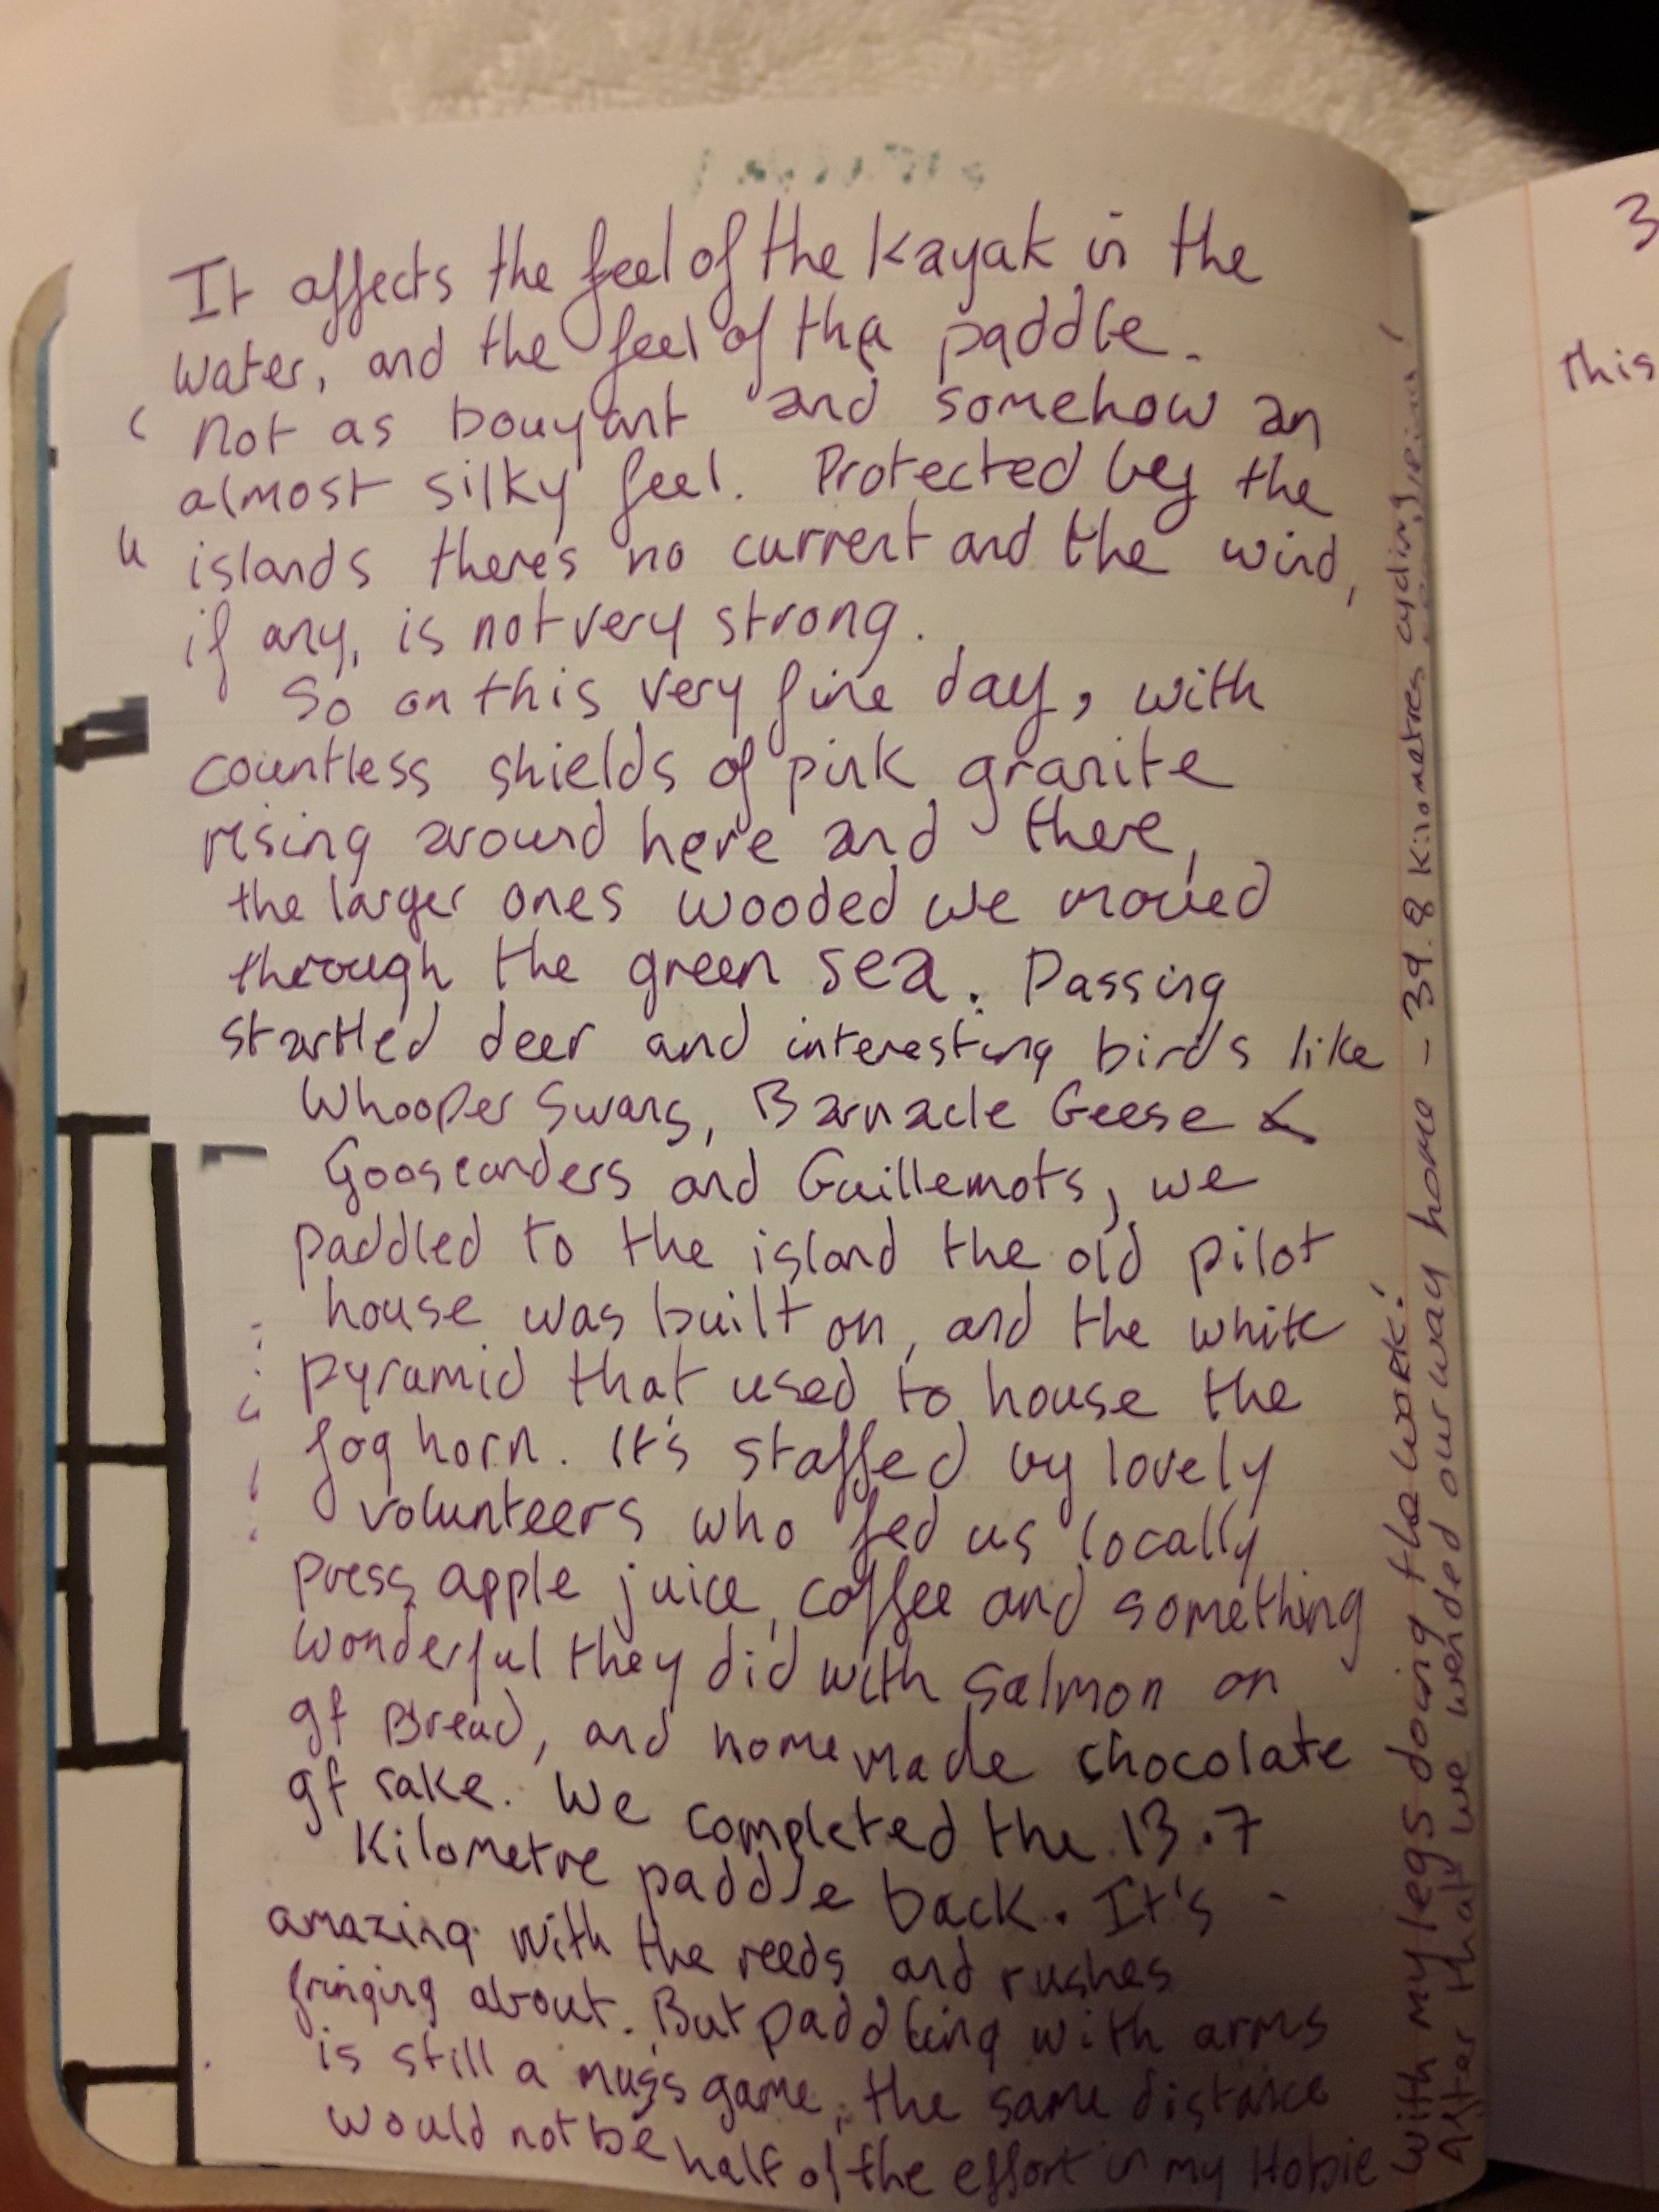 It affects the feel of the kayak in the
water, and the feel of the paddle.
Not as bouyant and somehow an
almost silky feel. Protected by the
islands there's no current and the wind,
if any, is not very strong.
So on this very fine day, with
countless shields of pink granite
rising around here and there,
the larger ones wooded we moved
through the green sea. Passing
startled deer and interesting birds like
Whooper Swans, Barnacle Geese &
Gooseanders and Guillemots, we
paddled to the island the old pilot
house was built on, and the white
pyramid that used to house the
fog horn. It's staffed by lovely
volunteers who fed us locally
press apple juice, coffee and something
wonderful they did with salmon on
gf Bread, and home made chocolate
gf cake. We completed the 13.7
Kilometre paddle back. It's
amazing with the reeds and rushes
fringing about. But paddling with arms
is still a mugs game, the same distance
would not be half of the effort in my Hobie
With my legs doing the work!
After that we wended our way home - 39.8 Kilometres cycling
3
this